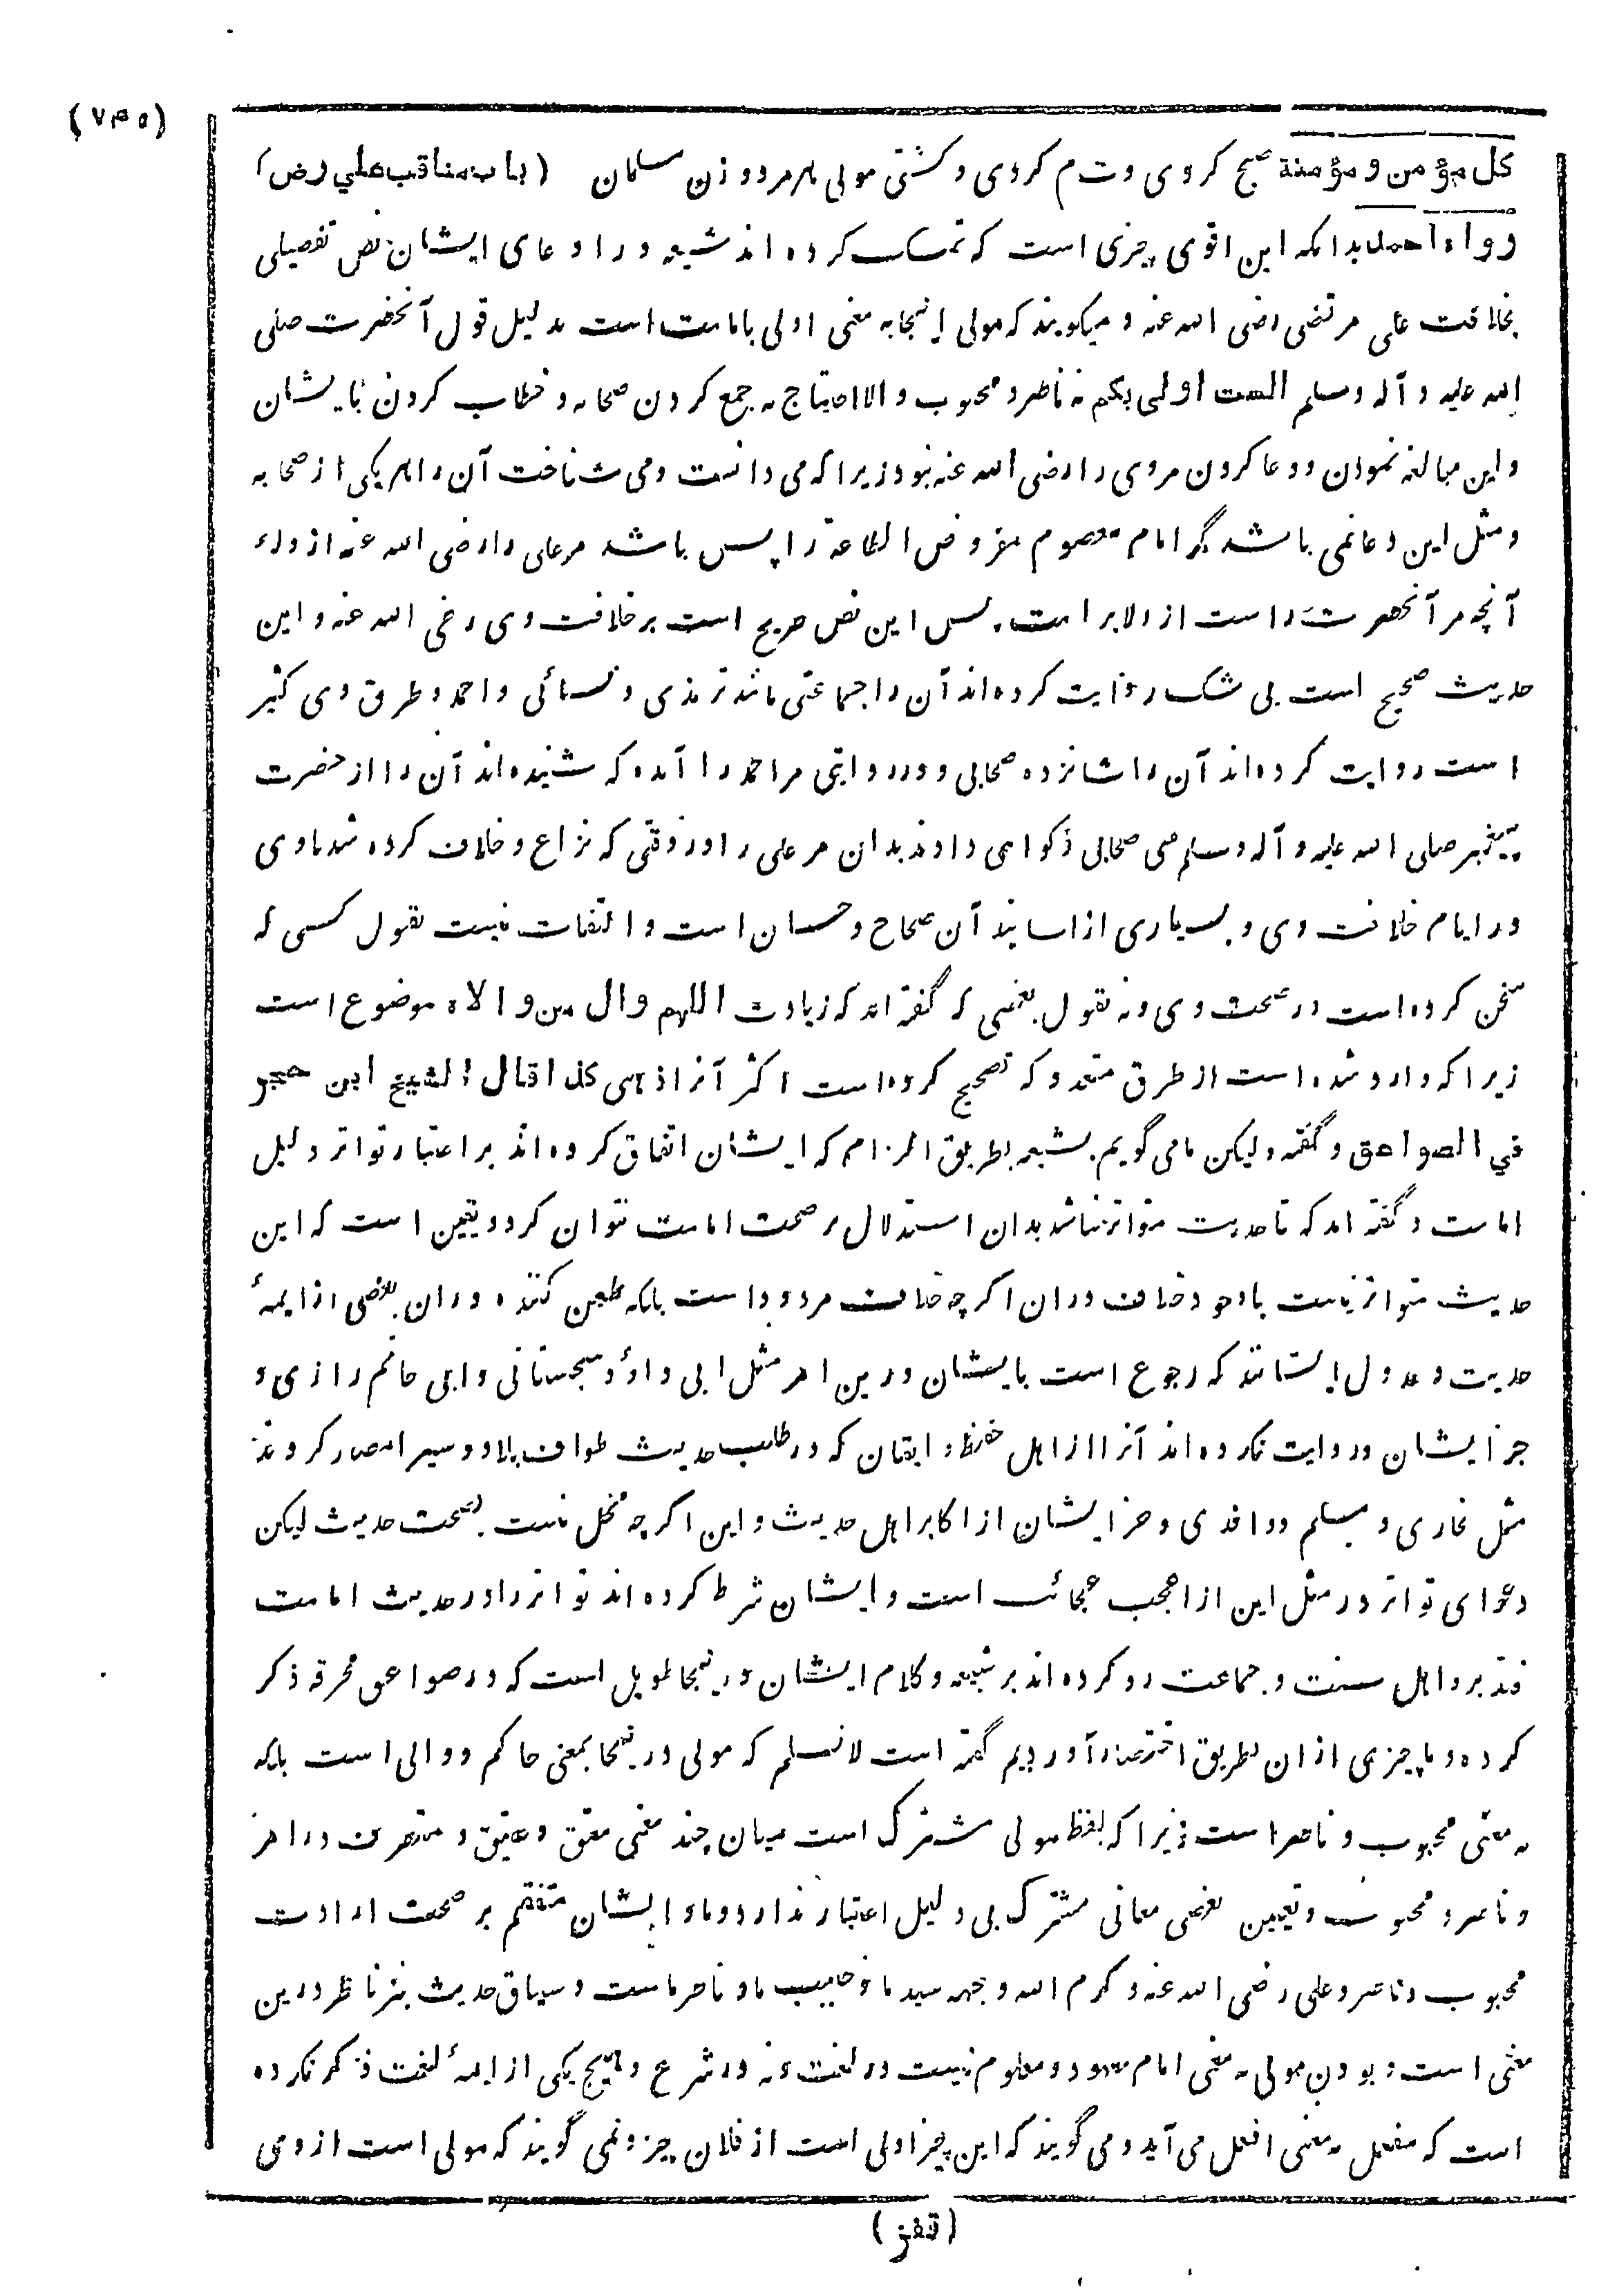 (۷۳۵)
كل مؤمن و مؤمنة صبح کردی و شام کردی و گشتی مولی هر مرد و زن مسلمان (باب مناقب علي رض)
رواه احمد بدانکه این اقوی چیزی است که تمسک کرده اند شیعه در ادعای ایشان نص تفصیلی
بخلافت علی مرتضی رضی الله عنه و میگویند که مولی اینجا به معنی اولی بامامت است بدلیل قول آنحضرت صلی
الله علیه و آله وسلم الست اولی بکم نه ناصر و محبوب و الا احتیاج به جمع کردن صحابه و خطاب کردن بایشان
و این مبالغه نمودن و دعا کردن مروی را رضی الله عنه نبود زیرا که می دانست و می شناخت آن را هر یکی از صحابه
و مثل این دعا نمی باشد مگر امام معصوم مفروض الطاعة را پس باشد مر علی را رضی الله عنه از ولاء
آنچه مر آنحضرت راست از ولا بر امت پس این نص صریح است بر خلافت وی رضی الله عنه و این
حدیث صحیح است بی شک روایت کرده اند آن را جماعتی مانند ترمذی و نسائی و احمد و طرق وی کثیر
است روایت کرده اند آن را شانزده صحابی و در روایتی مر احمد را آمده که شنیده اند آن را از حضرت
پیغمبر صلی الله علیه و آله وسلم سی صحابی و گواهی دادند بدان مر علی را در وقتی که نزاع و خلاف کرده شد با وی
در ایام خلافت وی و بسیاری از اسانید آن صحاح و حسان است و التفات نیست بقول کسی که
سخن کرده است در صحت وی و نه بقول بعضی که گفته اند که زیادت اللهم وال من والاه موضوع است
زیرا که وارد شده است از طرق متعدد که تصحیح کرده است اکثر آنرا ذهبی كذا قال الشيخ ابن حجر
في الصواعق و گفته و لیکن ما می گویم بشیعه بطریق الزام که ایشان اتفاق کرده اند بر اعتبار تواتر دلیل
امامت و گفته اند که تا حدیث متواتر نباشد بدان استدلال بر صحت امامت نتوان کرد و یقین است که این
حدیث متواتر نیست با وجود خلاف در ان اگرچه خلاف مردود است بلکه طعن کننده در ان بعضی از ایمهٔ
حدیث و عدول ایشانند که رجوع است بایشان درین امر مثل ابی داؤد سجستانی و ابی حاتم رازی و
جز ایشان و روایت نکرده اند آنرا از اهل حفظ و اتقان که در طلب حدیث طواف بلاد و سیر امصار کردند
مثل بخاری و مسلم و واقدی و جز ایشان از اکابر اهل حدیث و این اگرچه مخل نیست بصحت حدیث لیکن
دعوای تواتر در مثل این از اعجب عجائب است و ایشان شرط کرده اند تواتر را در حدیث امامت
فتدبر و اهل سنت و جماعت رد کرده اند بر شیعه و کلام ایشان درینجا طویل است که در صواعق محرقه ذکر
کرده و ما چیزی از ان بطریق اختصار آوردیم گفته است لا نسلم که مولی درینجا بمعنی حاکم و والی است بلکه
به معنی محبوب و ناصر است زیرا که لفظ مولی مشترک است میان چند معنی معتق و عتیق و متصرف در امر
و ناصر و محبوب و تعیین بعضی معانی مشترک بی دلیل اعتبار ندارد و ما و ایشان متفقیم بر صحت ارادت
محبوب و ناصر و علی رضی الله عنه و کرم الله وجهه سید ما و حبیب ما و ناصر ماست و سیاق حدیث نیز ناظر درین
معنی است و بودن مولی به معنی امام معهود و معلوم نیست در لغت و نه در شرع و هیچ یکی از ایمهٔ لغت ذکر نکرده
است که مفعل به معنی افعل می آید و می گویند که این چیز اولی است از فلان چیز و نمی گویند که مولی است از وی